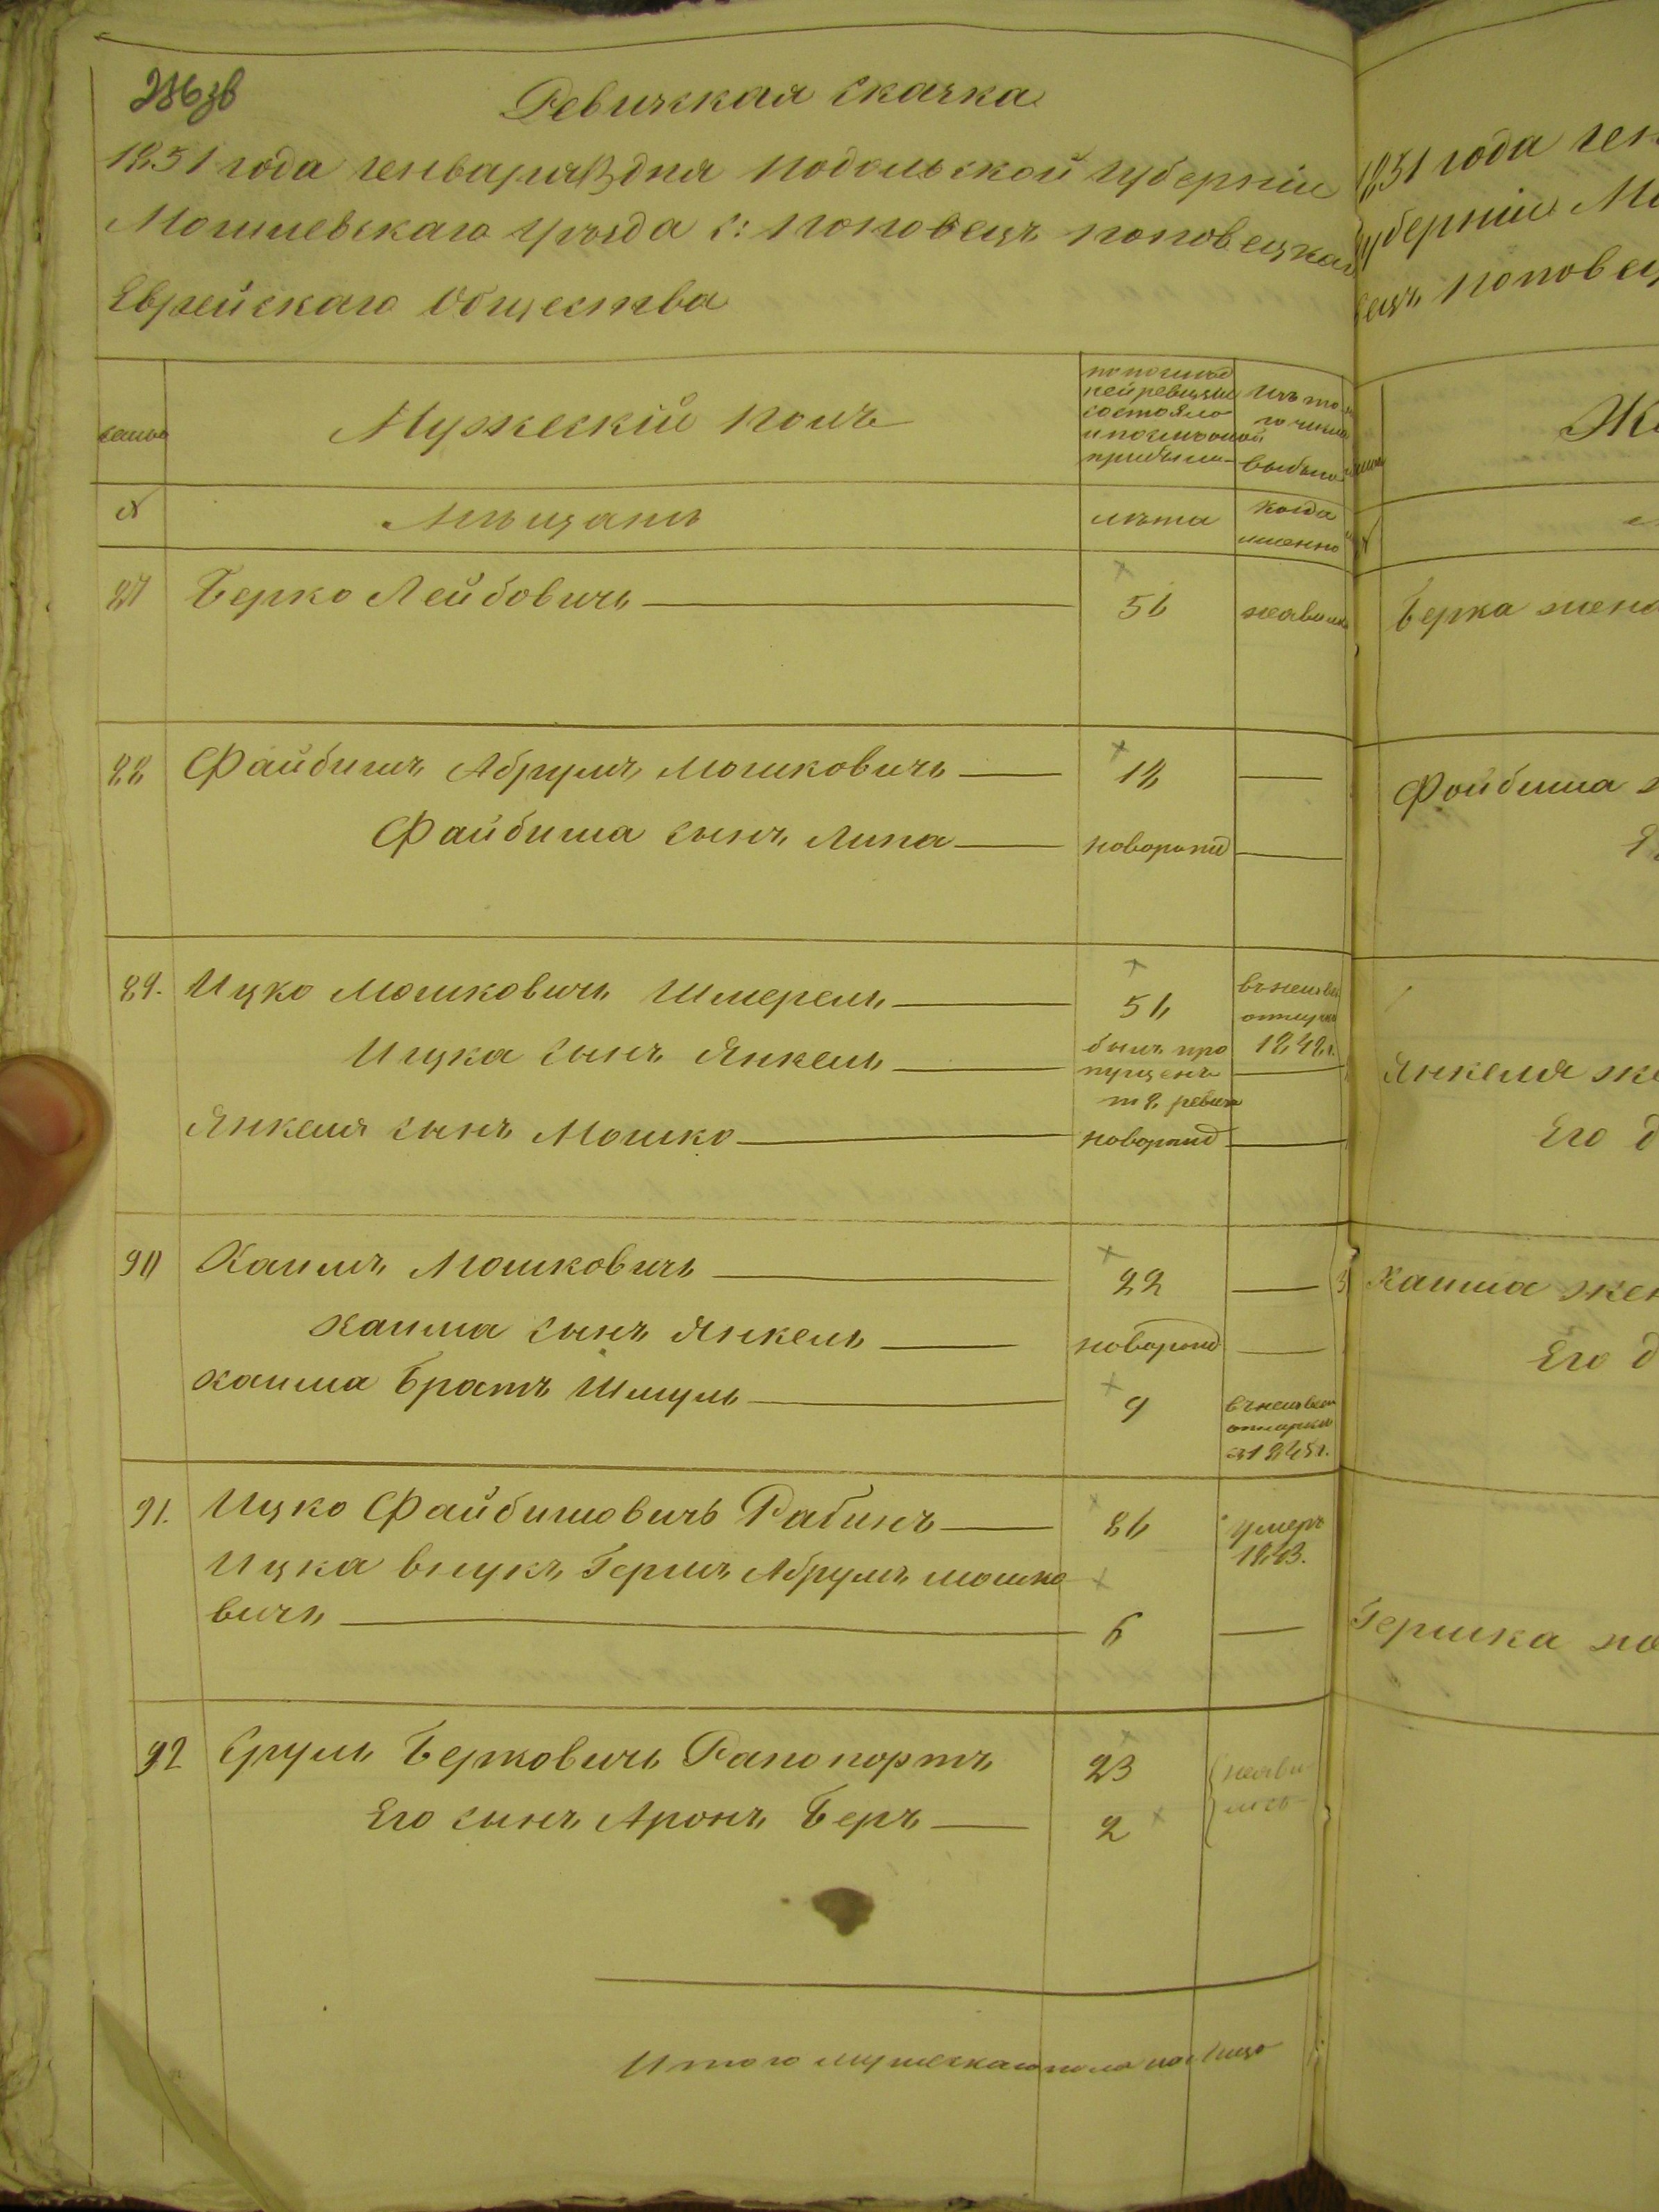 Ревижская скажка
1851 года генваря дня Подольской губерніи
Могилевскаго уѣзда с: Поповецъ Поповецкаго
Еврейскаго Общества
семьи
Мужескій полъ
по послѣд
ней ревизіи
состояло
и после оной
прибыло
изъ то
го числа
выбыло
№
Мѣщанъ
лѣта
когда
именно
87 Берко Лейбовичъ 56
88 Файбишъ Абрумъ Мошковичъ 18
Файбиша сынъ Липа новорожд
89. Ицко Мошковичъ Шмерель 56
въ неизвѣ
отлучкѣ
1848 г.
Ицка сынъ Янкель
былъ про
пущенъ
8 ревиз
Янкеля сынъ Мошко новорожд
90 Хаимъ Мошковичъ 22
Хаима сынъ Янкель новорожд
Хаима братъ Шмуль 9
въ неизвѣст
отлучкѣ
съ 1845 г.
91. Ицко Файбишовичъ Рабинъ 86
умеръ
1843.
Ицка внукъ Гершъ Абрумъ Мошко
вичъ 6
92 Сруль Берковичъ Рапопортъ 23
неяви
лись
Его сынъ Аронъ Беръ 2
Итого мужескаго пола на лицо
1851 года ген
губерніи Мо
Поповец
Же
Берка жена
Фойбиша
Янкеля же
Его д
Хаима жен
Его д
Гершка